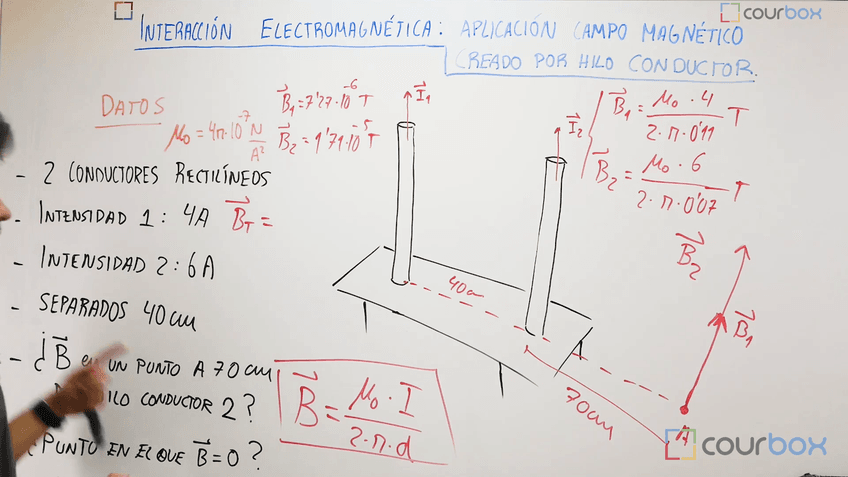 INTERACCIÓN ELECTROMAGNÉTICA: APLICACIÓN CAMPO MAGNÉTICO
CREADO POR HILO CONDUCTOR.
courbox
DATOS
μ₀ = 4π·10⁻⁷ N/A²
B⃗₁ = 7'27·10⁻⁶ T
B⃗₂ = 1'71·10⁻⁵ T
- 2 CONDUCTORES RECTILÍNEOS
- INTENSIDAD 1: 4A
B⃗T =
- INTENSIDAD 2: 6A
- SEPARADOS 40cm
- ¿B⃗ en UN PUNTO A 70cm
HILO CONDUCTOR 2?
PUNTO EN EL QUE B⃗=0?
B⃗ = μ₀·I / 2·π·d
I⃗₁
I⃗₂
40cm
70cm
A
B⃗₁ = μ₀·4 / 2·π·0'11 T
B⃗₂ = μ₀·6 / 2·π·0'07 T
B⃗₂
B⃗₁
courbox